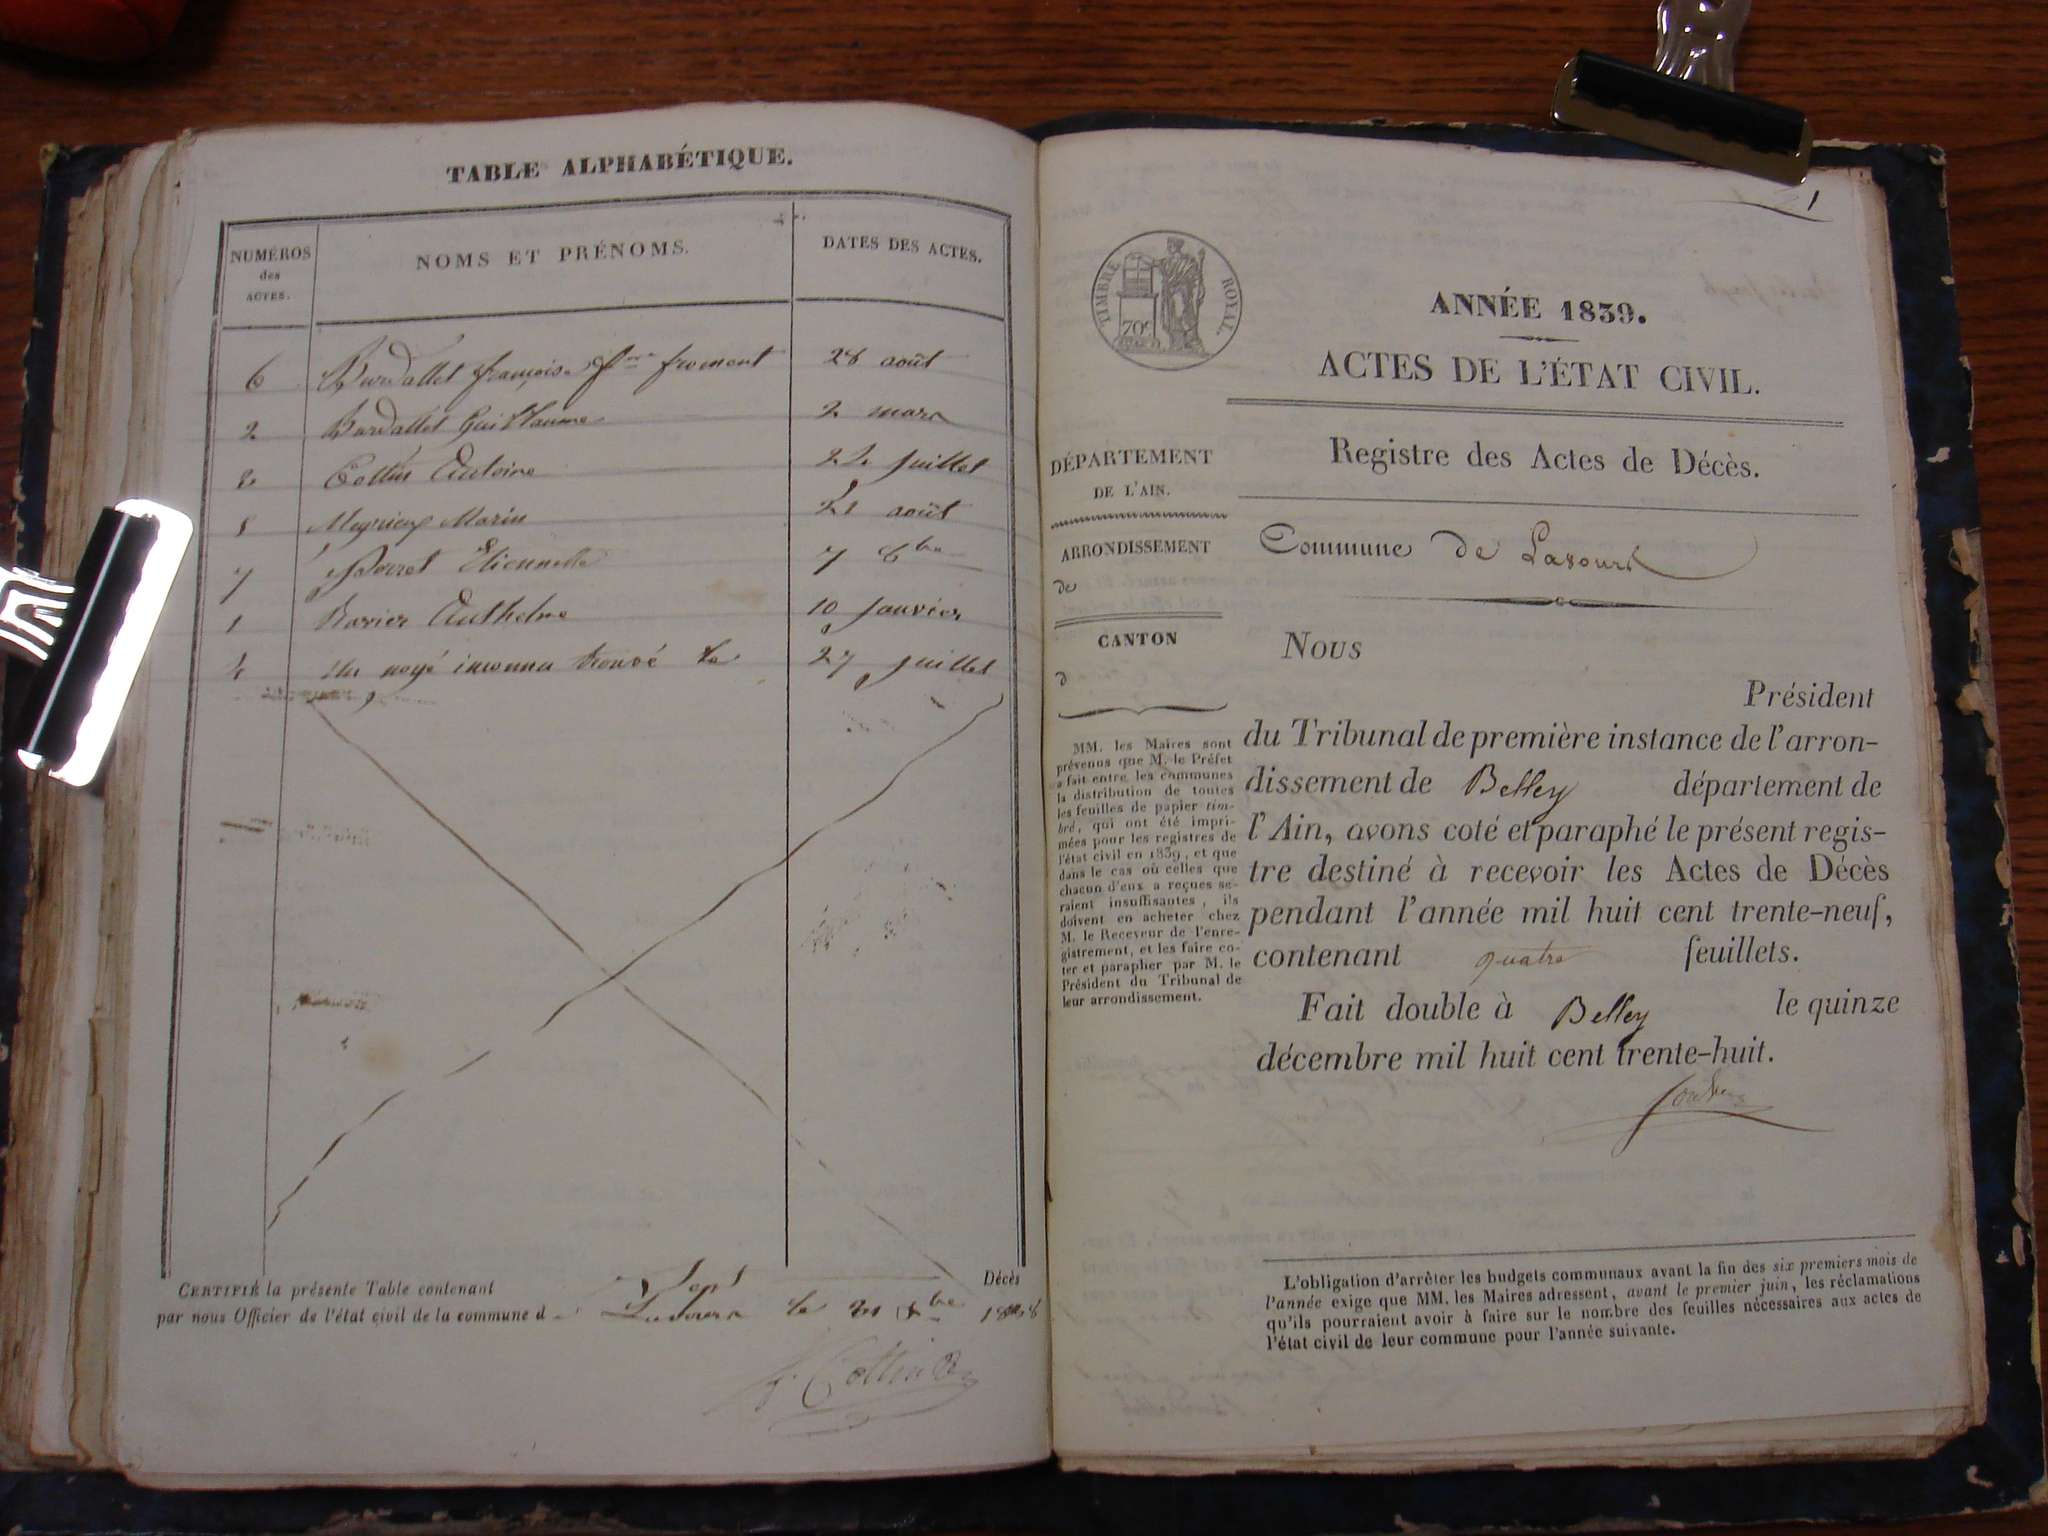 TABLE ALPHABÉTIQUE.
NUMÉROS
des
ACTES.
NOMS ET PRÉNOMS.
DATES DES ACTES.
6 Burdallet françoise fme froment 28 août
2 Burdallet Guillaume 2 mars
Collin Antoine 22 juillet
5 Meynieux Marin 21 août
7 Perret Etiennette 7 8bre
1 Ravier Anthelme 10 Janvier
4 Un noyé inconnu trouvé le 27 juillet
CERTIFIÉ la présente Table contenant Sept Décès
par nous Officier de l'état civil de la commune d Lavours le 31 Xbre 1838
Collin
1
TIMBRE ROYAL.
70c
ANNÉE 1839.
ACTES DE L'ÉTAT CIVIL.
DÉPARTEMENT
DE L'AIN.
ARRONDISSEMENT
de
CANTON
d
MM. les Maires sont
prévenus que M. le Préfet
a fait entre les communes
la distribution de toutes
les feuilles de papier tim-
bré, qui ont été impri-
mées pour les registres de
l'état civil en 1839, et que
dans le cas où celles que
chacun d'eux a reçues se-
raient insuffisantes, ils
doivent en acheter chez
M. le Receveur de l'enre-
gistrement, et les faire co-
ter et parapher par M. le
Président du Tribunal de
leur arrondissement.
Registre des Actes de Décès.
Commune de Lavours
Nous
Président
du Tribunal de première instance de l'arron-
dissement de Belley département de
l'Ain, avons coté et paraphé le présent regis-
tre destiné à recevoir les Actes de Décès
pendant l'année mil huit cent trente-neuf,
contenant quatre feuillets.
Fait double à Belley le quinze
décembre mil huit cent trente-huit.
L'obligation d'arrêter les budgets communaux avant la fin des six premiers mois de
l'année exige que MM. les Maires adressent, avant le premier juin, les réclamations
qu'ils pourraient avoir à faire sur le nombre des feuilles nécessaires aux actes de
l'état civil de leur commune pour l'année suivante.